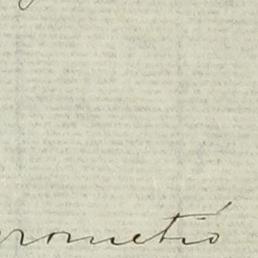 rometió